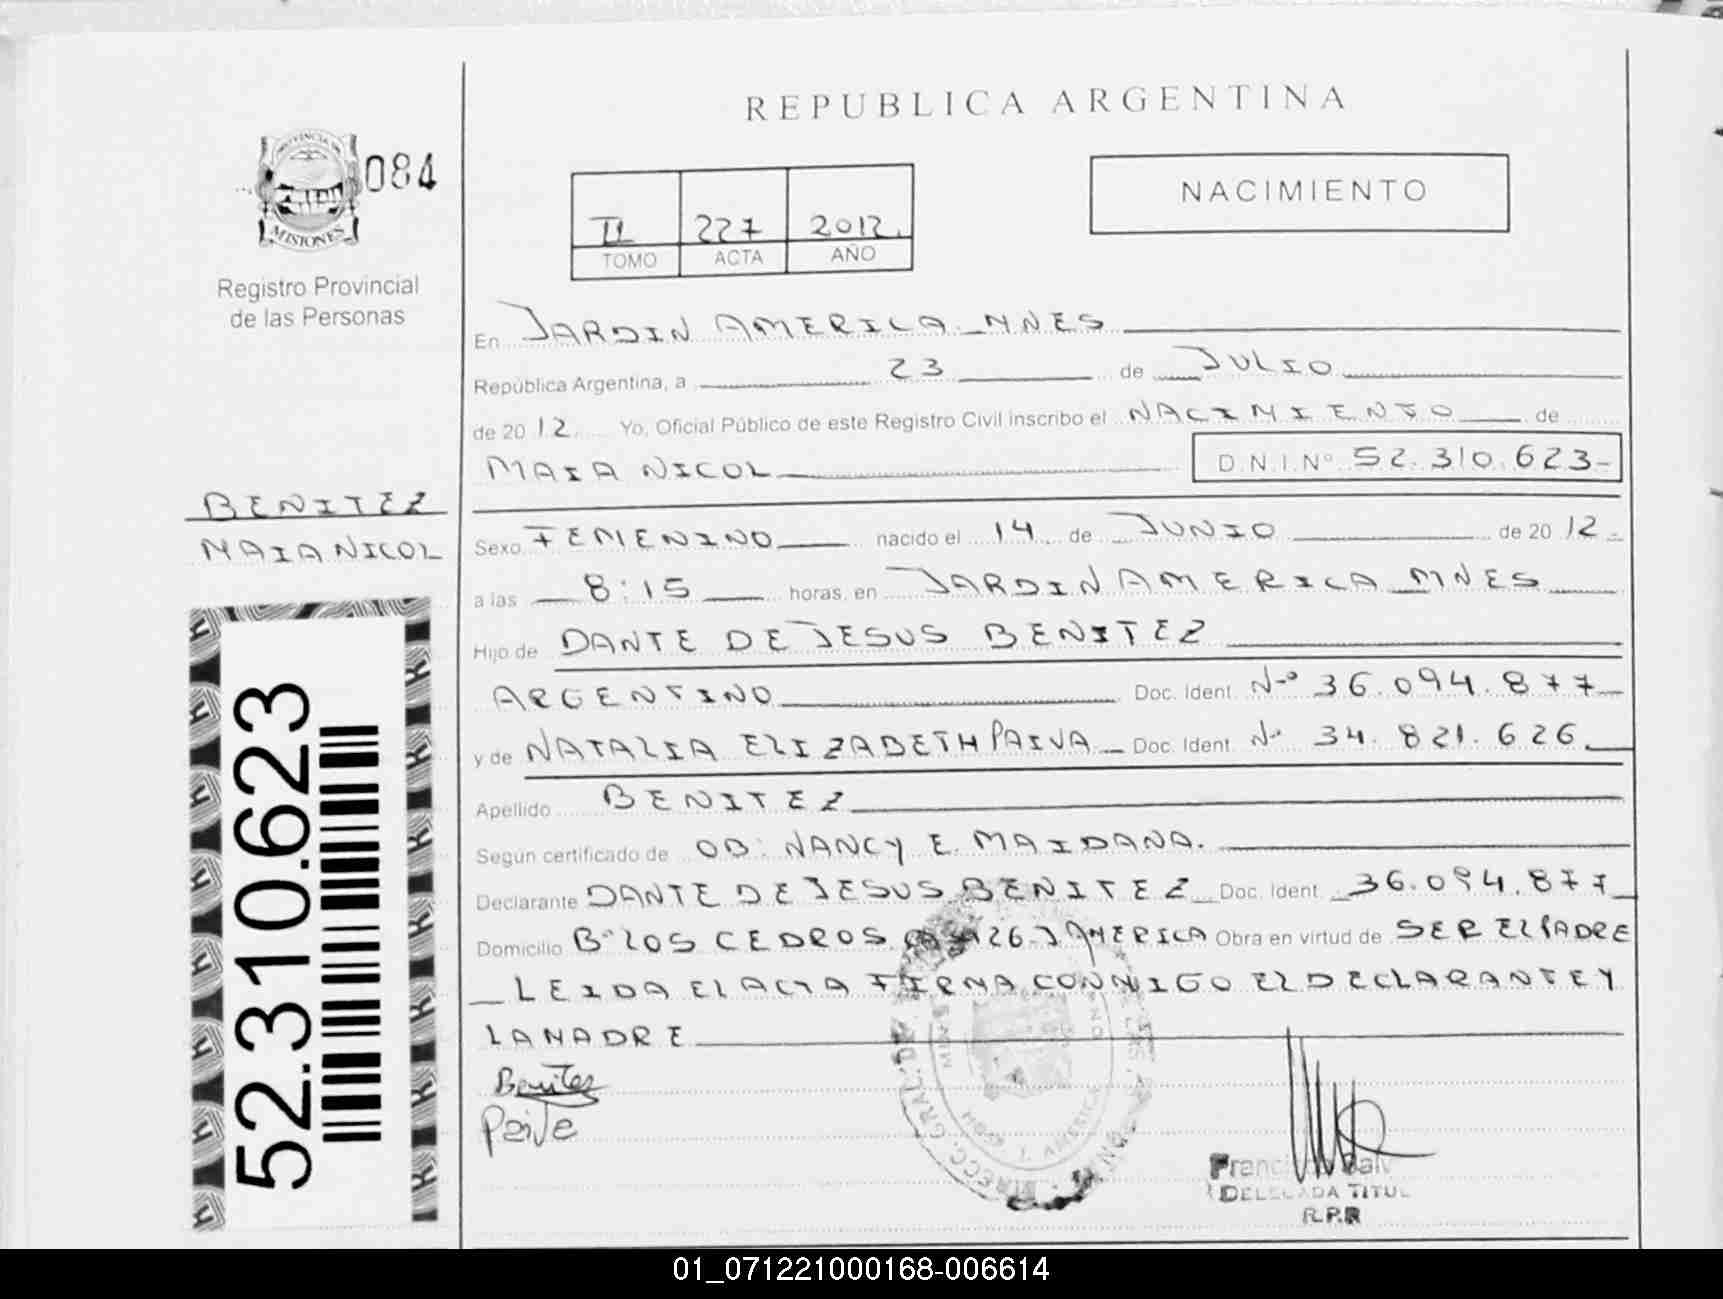 REPUBLICA ARGENTINA
PROVINCIA DE
MISIONES
084
Registro Provincial
de las Personas
II 227 2012.
TOMO ACTA AÑO
NACIMIENTO
En JARDIN AMERICA - MNES
República Argentina, a 23 de JULIO
de 20 12. Yo, Oficial Público de este Registro Civil inscribo el NACIMIENTO de
MAIA NICOL D.N.I.Nº 52.310.623-
BENITEZ
MAIA NICOL
Sexo FEMENINO nacido el 14 de JUNIO de 20 12-
a las 8:15 horas, en JARDIN AMERICA MNES
Hijo de DANTE DE JESUS BENITEZ
ARGENTINO Doc. Ident. Nº 36.094.877
y de NATALIA ELIZABETH PAIVA Doc. Ident. Nº 34.821.626
Apellido BENITEZ
Según certificado de OB: NANCY E. MAIDANA.
Declarante DANTE DE JESUS BENITEZ Doc. Ident. 36.094.877
Domicilio Bº LOS CEDROS 126-J AMERICA Obra en virtud de SER EL PADRE
LEIDA EL ACTA FIRMA CONMIGO EL DECLARANTE Y
LA MADRE
Benitez
Paiva
DIRECC. GRAL. DE
J. AMERICA
DELEGADA TITUL
R.P.P
52.310.623
01_071221000168-006614